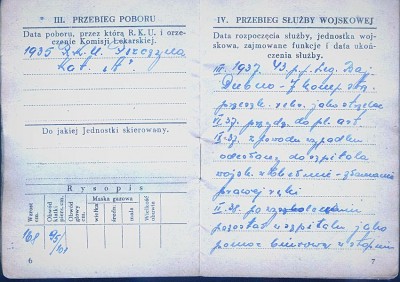 III. PRZEBIEG POBORU
Data poboru, przez którą R. K. U. i orze-
czenie Komisji Lekarskiej.
1935 R.K.U. Szczyrca
Kat. „A".
Do jakiej Jednostki skierowany.
Rysopis
Wzrost cm.
Obwód klatki piers. cm.
Obwód głowy cm.
Maska gazowa
wielka
średn.
mała
Wielkość obuwia
168
95/101
6
IV. PRZEBIEG SŁUŻBY WOJSKOWEJ
Data rozpoczęcia służby, jednostka woj-
skowa, zajmowane funkcje i data ukoń-
czenia służby.
III. 1937. 43 p.p. Leg. Baj.
Dubno - 7 komp.
jako strzelec
37. przydz. do pl. art
37. z powodu wypadku
odesłany do szpitala
wojsk. w Chełmie - złamanie
prawej ręki
38. po
pozostał w szpitalu jako
pomoc biurowa w stopniu
7